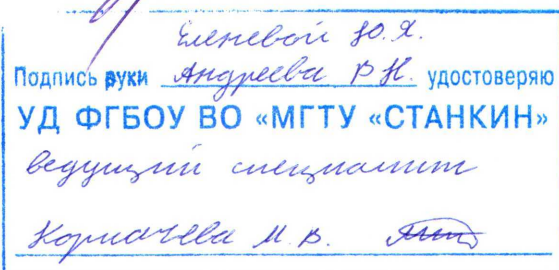 Еленевой Ю.Я.
Подпись руки Андреева В Н. удостоверяю
УД ФГБОУ ВО «МГТУ «СТАНКИН»
ведущий специалист
М.В.